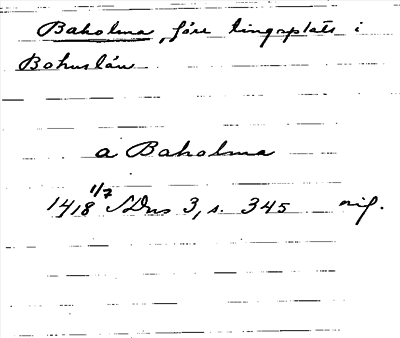 Baholma, före tingsplats i
Bohuslän
a Baholma
1418 1/7 SDns 3, s. 345 nif.